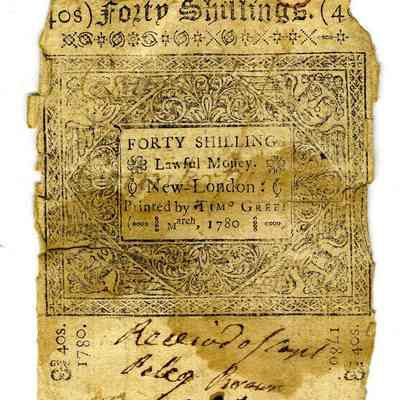 40s) Forty Shillings. (40
FORTY SHILLING
Lawful Money.
New-London:
Printed by TIMº GREE
March, 1780
40s.
1780.
1780
40s.
Received of Capt
Peleg Brown